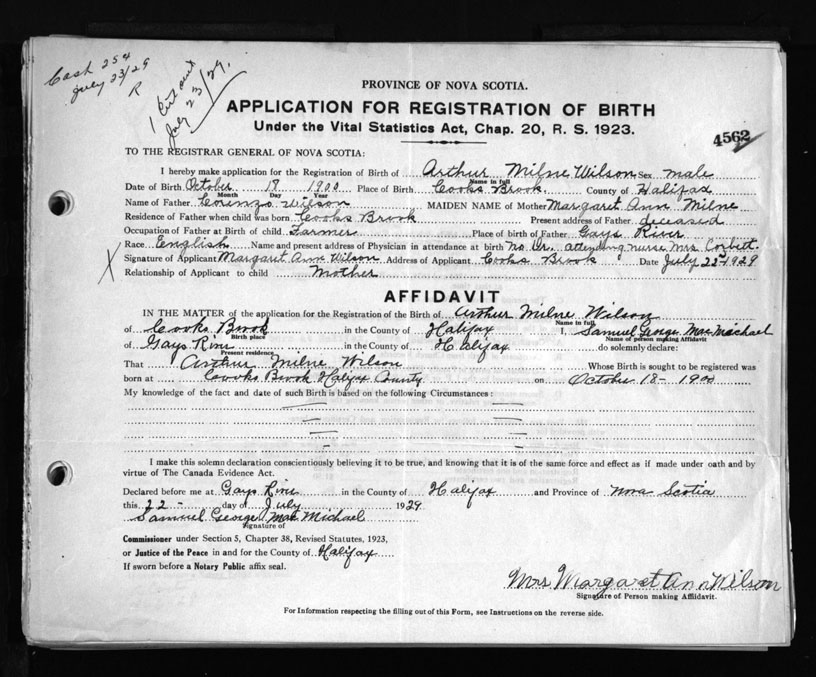 Cash 254
July 23/29
R
1 Cert out
July 23/29.
PROVINCE OF NOVA SCOTIA.
APPLICATION FOR REGISTRATION OF BIRTH
Under the Vital Statistics Act, Chap. 20, R. S. 1923.
4562
TO THE REGISTRAR GENERAL OF NOVA SCOTIA:
I hereby make application for the Registration of Birth of Arthur Milne Wilson Sex male
Name in full
Date of Birth October 18 1900 Place of Birth Cooks Brook County of Halifax
Month Day Year
Name of Father Lorenzo Wilson MAIDEN NAME of Mother Margaret Ann Milne
Residence of Father when child was born Cooks Brook Present address of Father deceased
Occupation of Father at Birth of child Farmer Place of birth of Father Gays River
Race English Name and present address of Physician in attendance at birth No Dr. attending nurse Mrs Corbett.
X Signature of Applicant Margaret Ann Wilson Address of Applicant Cooks Brook Date July 22nd 1929
Relationship of Applicant to child Mother
AFFIDAVIT
IN THE MATTER of the application for the Registration of the Birth of Arthur Milne Wilson
Name in full
of Cooks Brook in the County of Halifax I, Samuel George MacMichael
Birth place Name of person making Affidavit
of Gays River in the County of Halifax do solemnly declare:
Present residence
That Arthur Milne Wilson Whose Birth is sought to be registered was
born at Cooks Brook Halifax County on October 18 - 1900
My knowledge of the fact and date of such Birth is based on the following Circumstances:
I make this solemn declaration conscientiously believing it to be true, and knowing that it is of the same force and effect as if made under oath and by
virtue of The Canada Evidence Act.
Declared before me at Gays River in the County of Halifax and Province of Nova Scotia
this 22 - day of July 1929
Samuel George MacMichael
Signature of
Commissioner under Section 5, Chapter 38, Revised Statutes, 1923,
or Justice of the Peace in and for the County of Halifax
If sworn before a Notary Public affix seal.
Mrs Margaret Ann Wilson
Signature of Person making Affidavit.
For Information respecting the filling out of this Form, see Instructions on the reverse side.